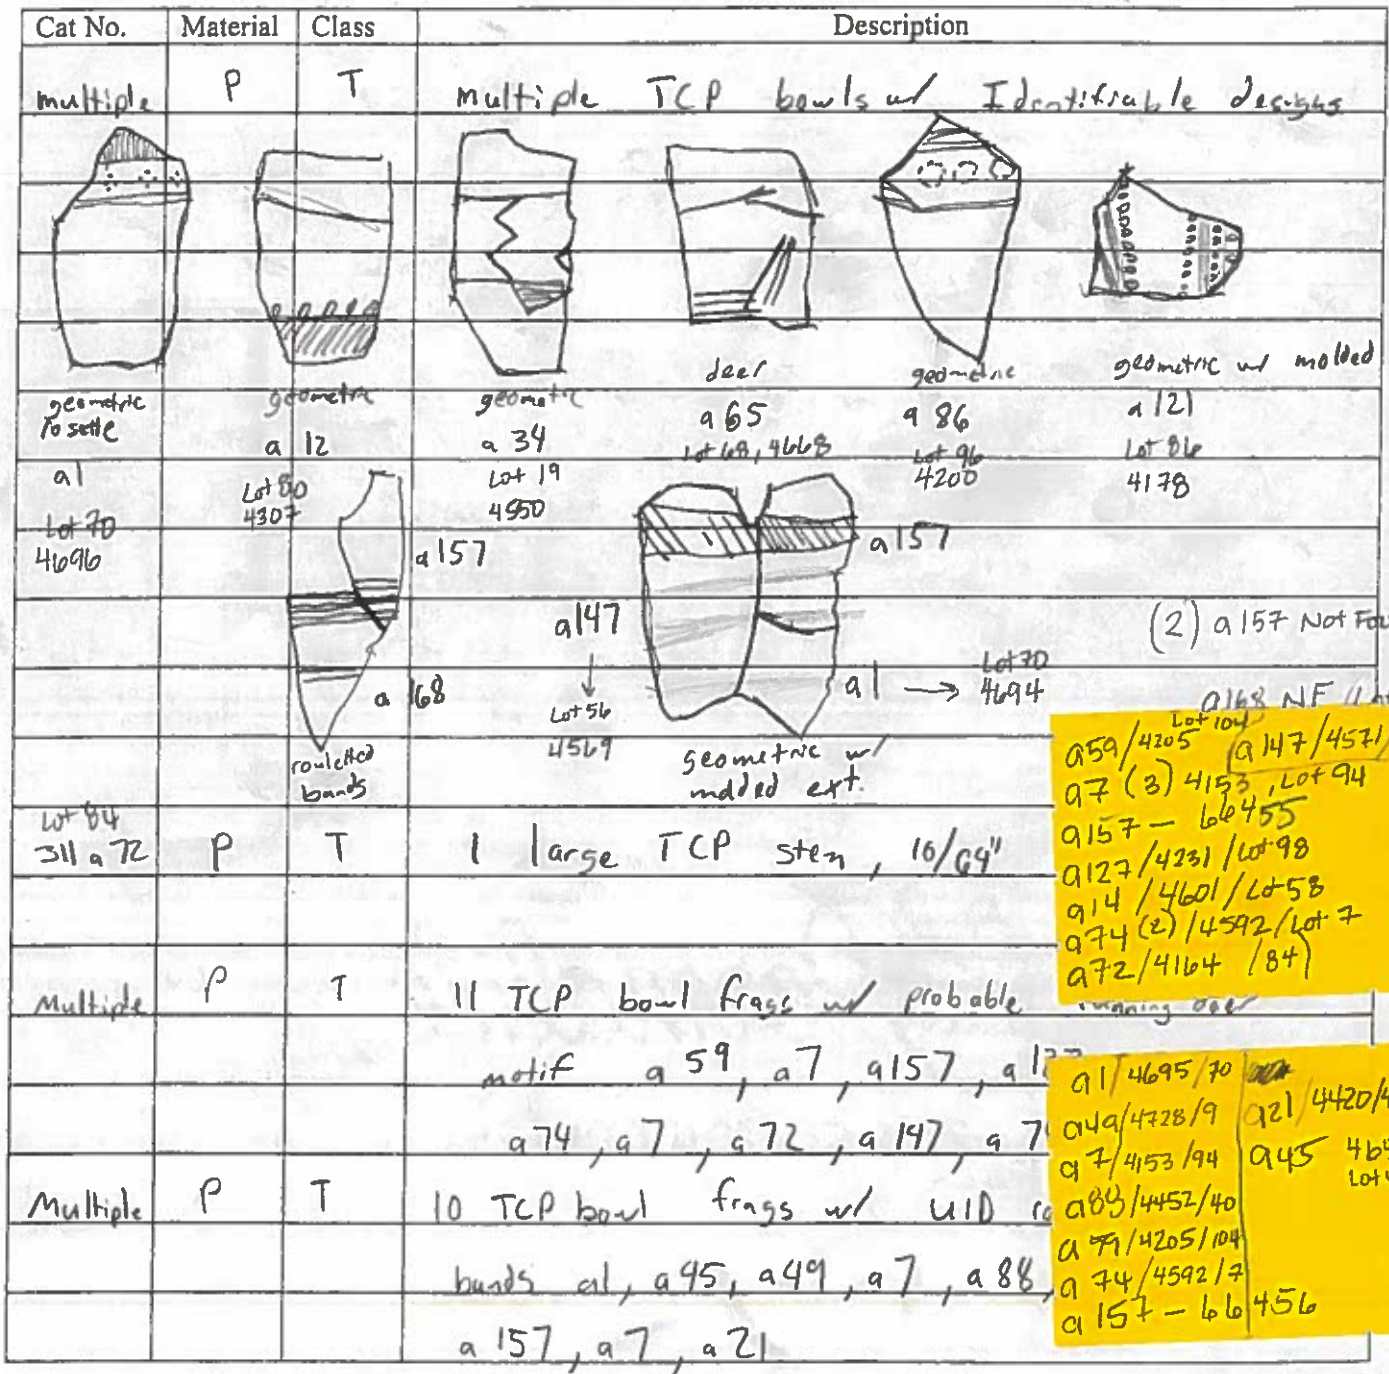 Cat No. Material Class Description
Multiple P T Multiple TCP bowls w/ Identifiable designs
geometric
rosette
a1
Lot 70
4696
geometric
a 12
Lot 80
4307
geometric
a 34
Lot 19
4550
deer
a 65
Lot 68, 4668
geometric
a 86
Lot 96
4200
geometric w/ molded
a 121
Lot 86
4178
a 157
a 168
rouletted
bands
a147
Lot 56
4569
a157
a1 → Lot 70
4694
geometric w/
molded ext.
(2) a157 Not Fou
a168 NF
Lot 84
311 a 72 P T 1 large TCP stem, 10/64"
Multiple P T 11 TCP bowl frags w/ probable running deer
motif a 59, a7, a157, a 12
a74, a7, a72, a147, a 7
Multiple P T 10 TCP bowl frags w/ UID
bands a1, a45, a49, a7, a88,
a 157, a7, a 21
Lot 104
a59/4205 (a147/4571/
a7 (3) 4153, Lot 94
a157 - 66455
a127/4231/Lot 98
a14/4601/Lot 58
a74 (2)/4592/Lot 7
a72/4164 /84)
a1/4695/70
a49/4728/9
a7/4153/94
a88/4452/40
a 79/4205/104
a 74/4592/7
a 157 - 66456
a21/4420/4
a45
Lot